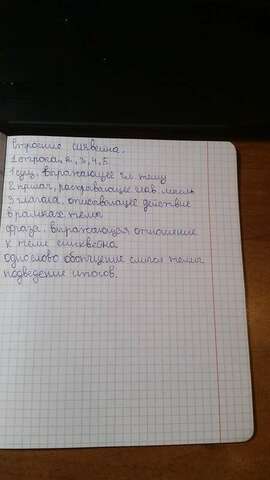 Строение синквейна.
1 строка, 2, 3, 4, 5.
1 сущ, выражающее гл. тему
2 прилаг, раскрывающее глав мысль
3 глагола, описывающее действие
в рамках темы
фраза, выражающая отношение
к теме синквейна
одно слово обобщение смысл темы
подведение итогов.